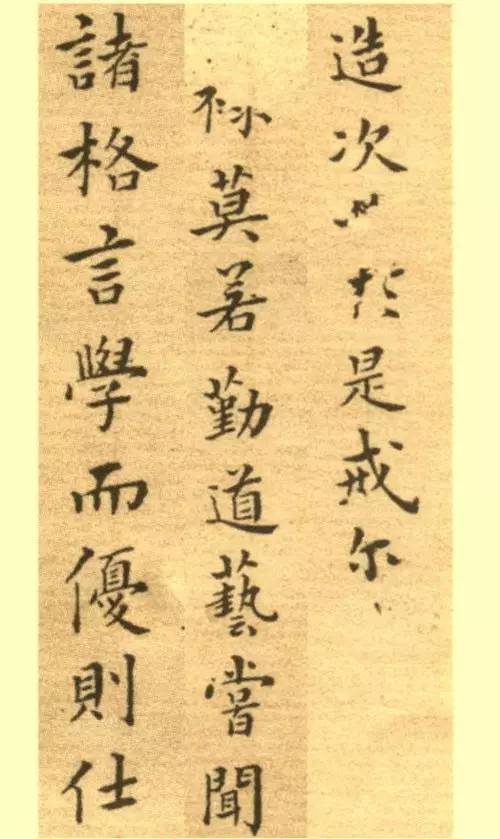 造次必於是戒尔
禄莫若勤道藝嘗聞
諸格言學而優則仕